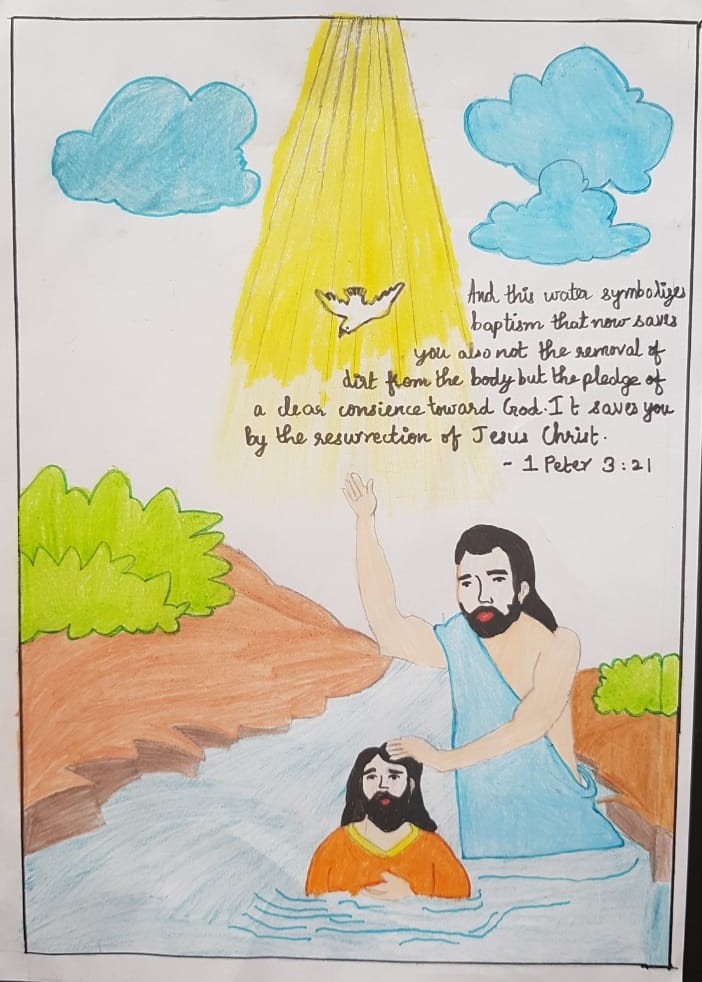 And this water symbolizes
baptism that now saves
you also not the removal of
dirt from the body but the pledge of
a clear consience toward God. It saves you
by the resurrection of Jesus Christ.
- 1 Peter 3:21